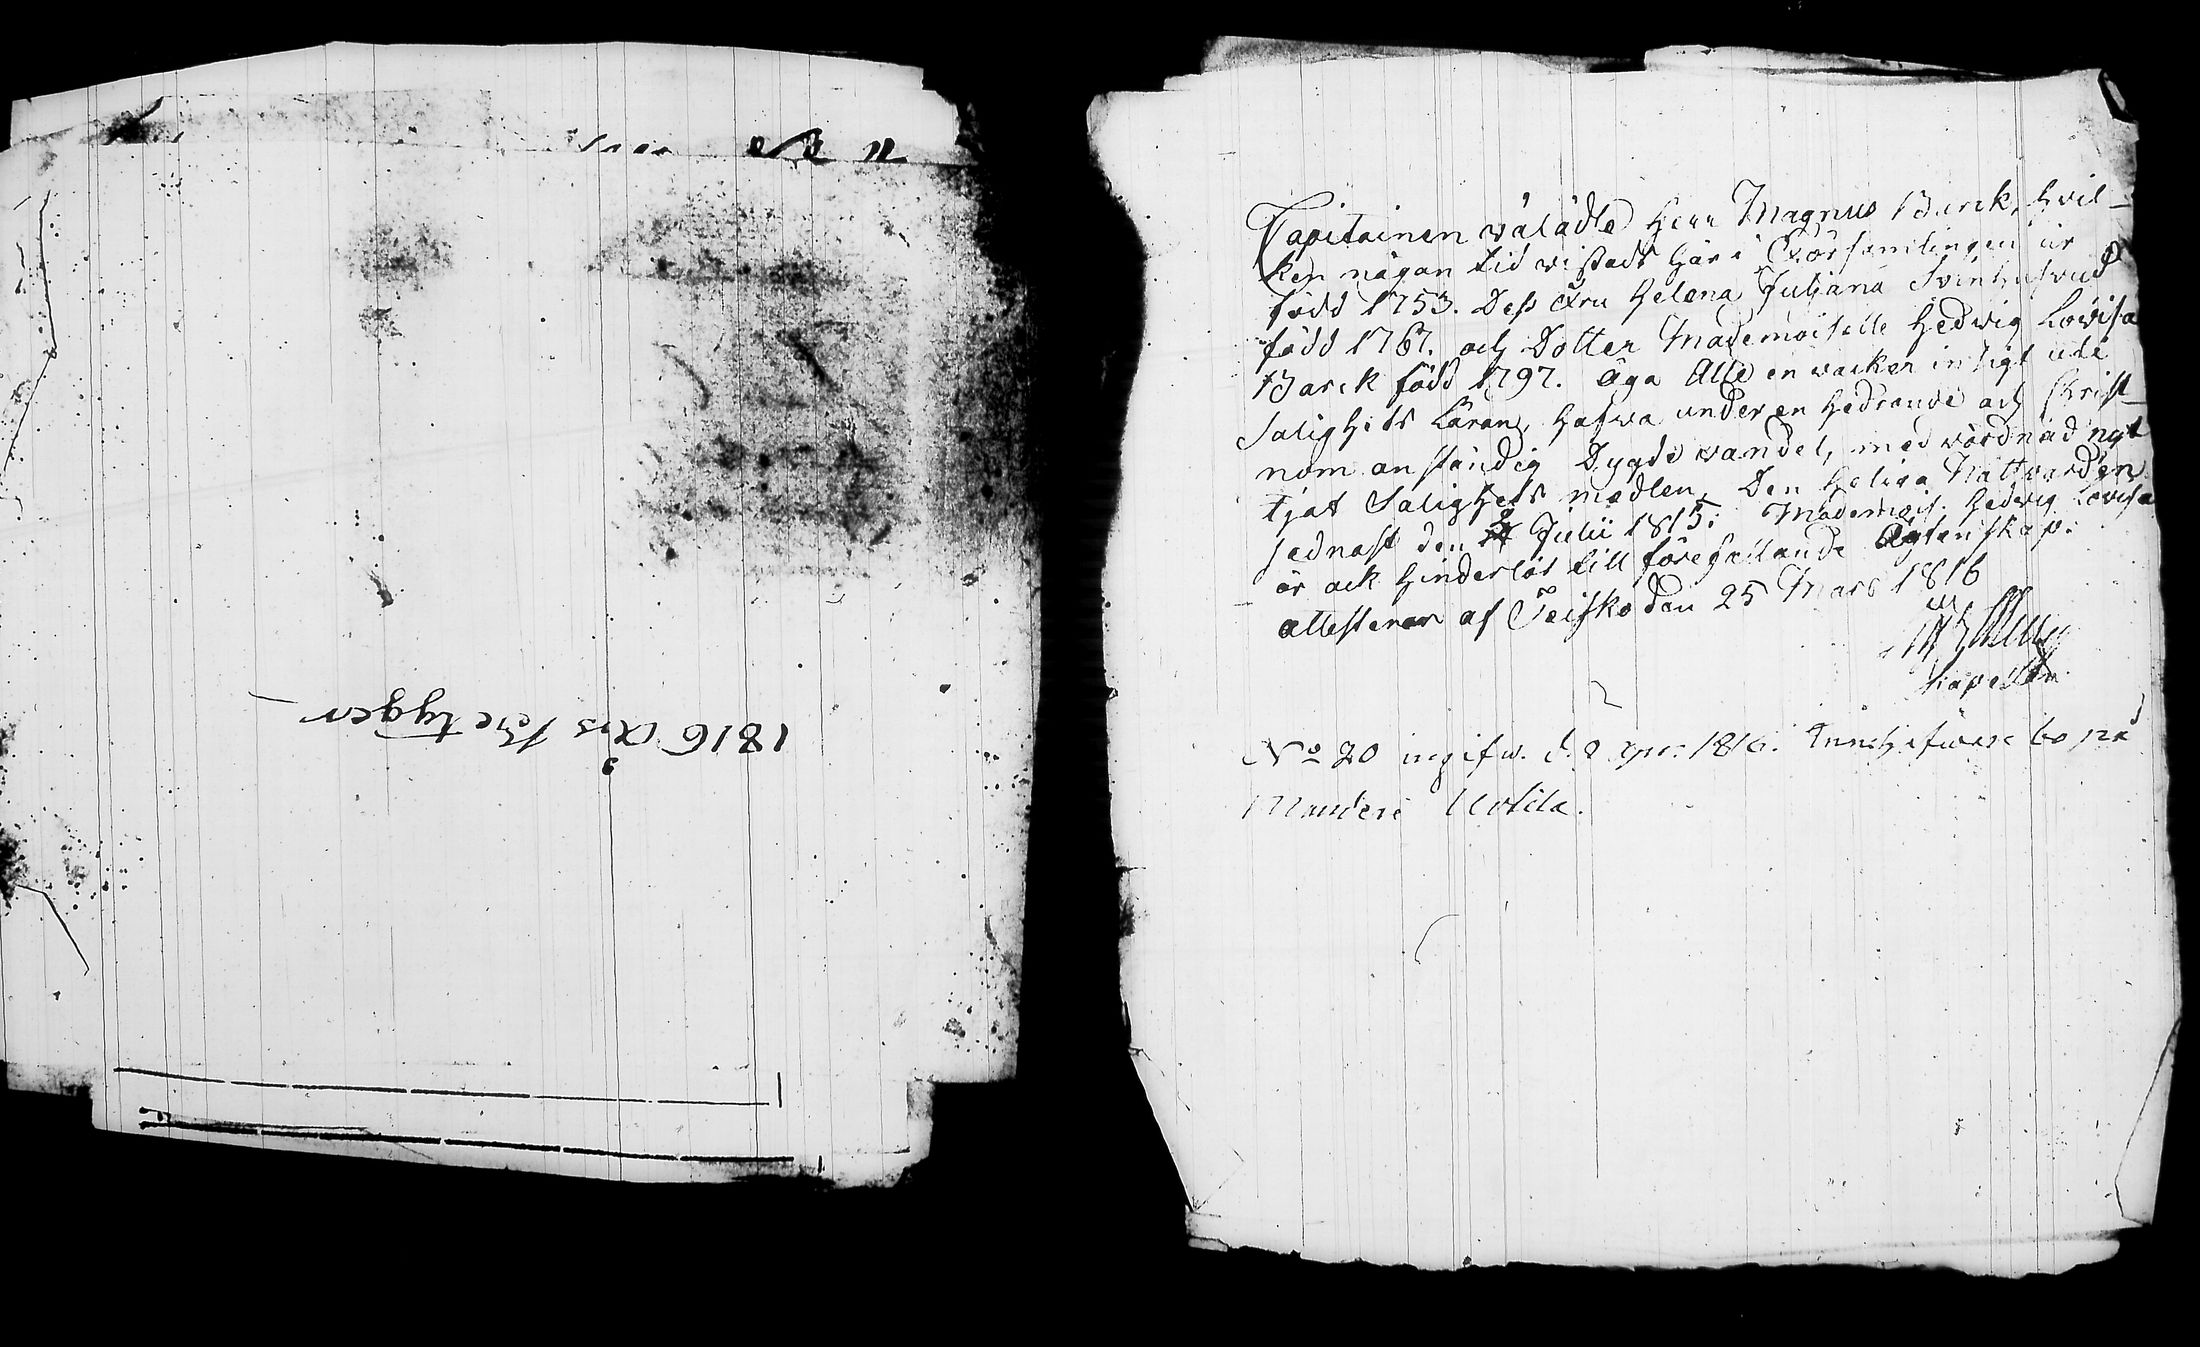 1816 Års Bretyger
Capitainen välädle Herr Magnus Barck, hvil-
ken någon tid vistads här i Församlingen är
född 1753. Dess Fru Helena Juljana Svinhufvud
född 1767. och Dotter Mademoiselle Hedvig Lovisa
Barck född 1797. äga Alle en vacker insigt uti
Salighets Läran, hafva under en hedrande och Christ-
nom anständig Dygde vandel, med vördnad nyt
tjat Salighets medlen, Den Heliga Nattvarden
sednast den Julii 1815. Mademois. Hedvig Lovisa
är ock hinderlös till förefallande Ägtenskap.
attesterar af Teisko den 25 Mars 1816
Kapellan
No 20 ingifw. d. 2 Apr. 1816. Innehafware bo på
Urtila.